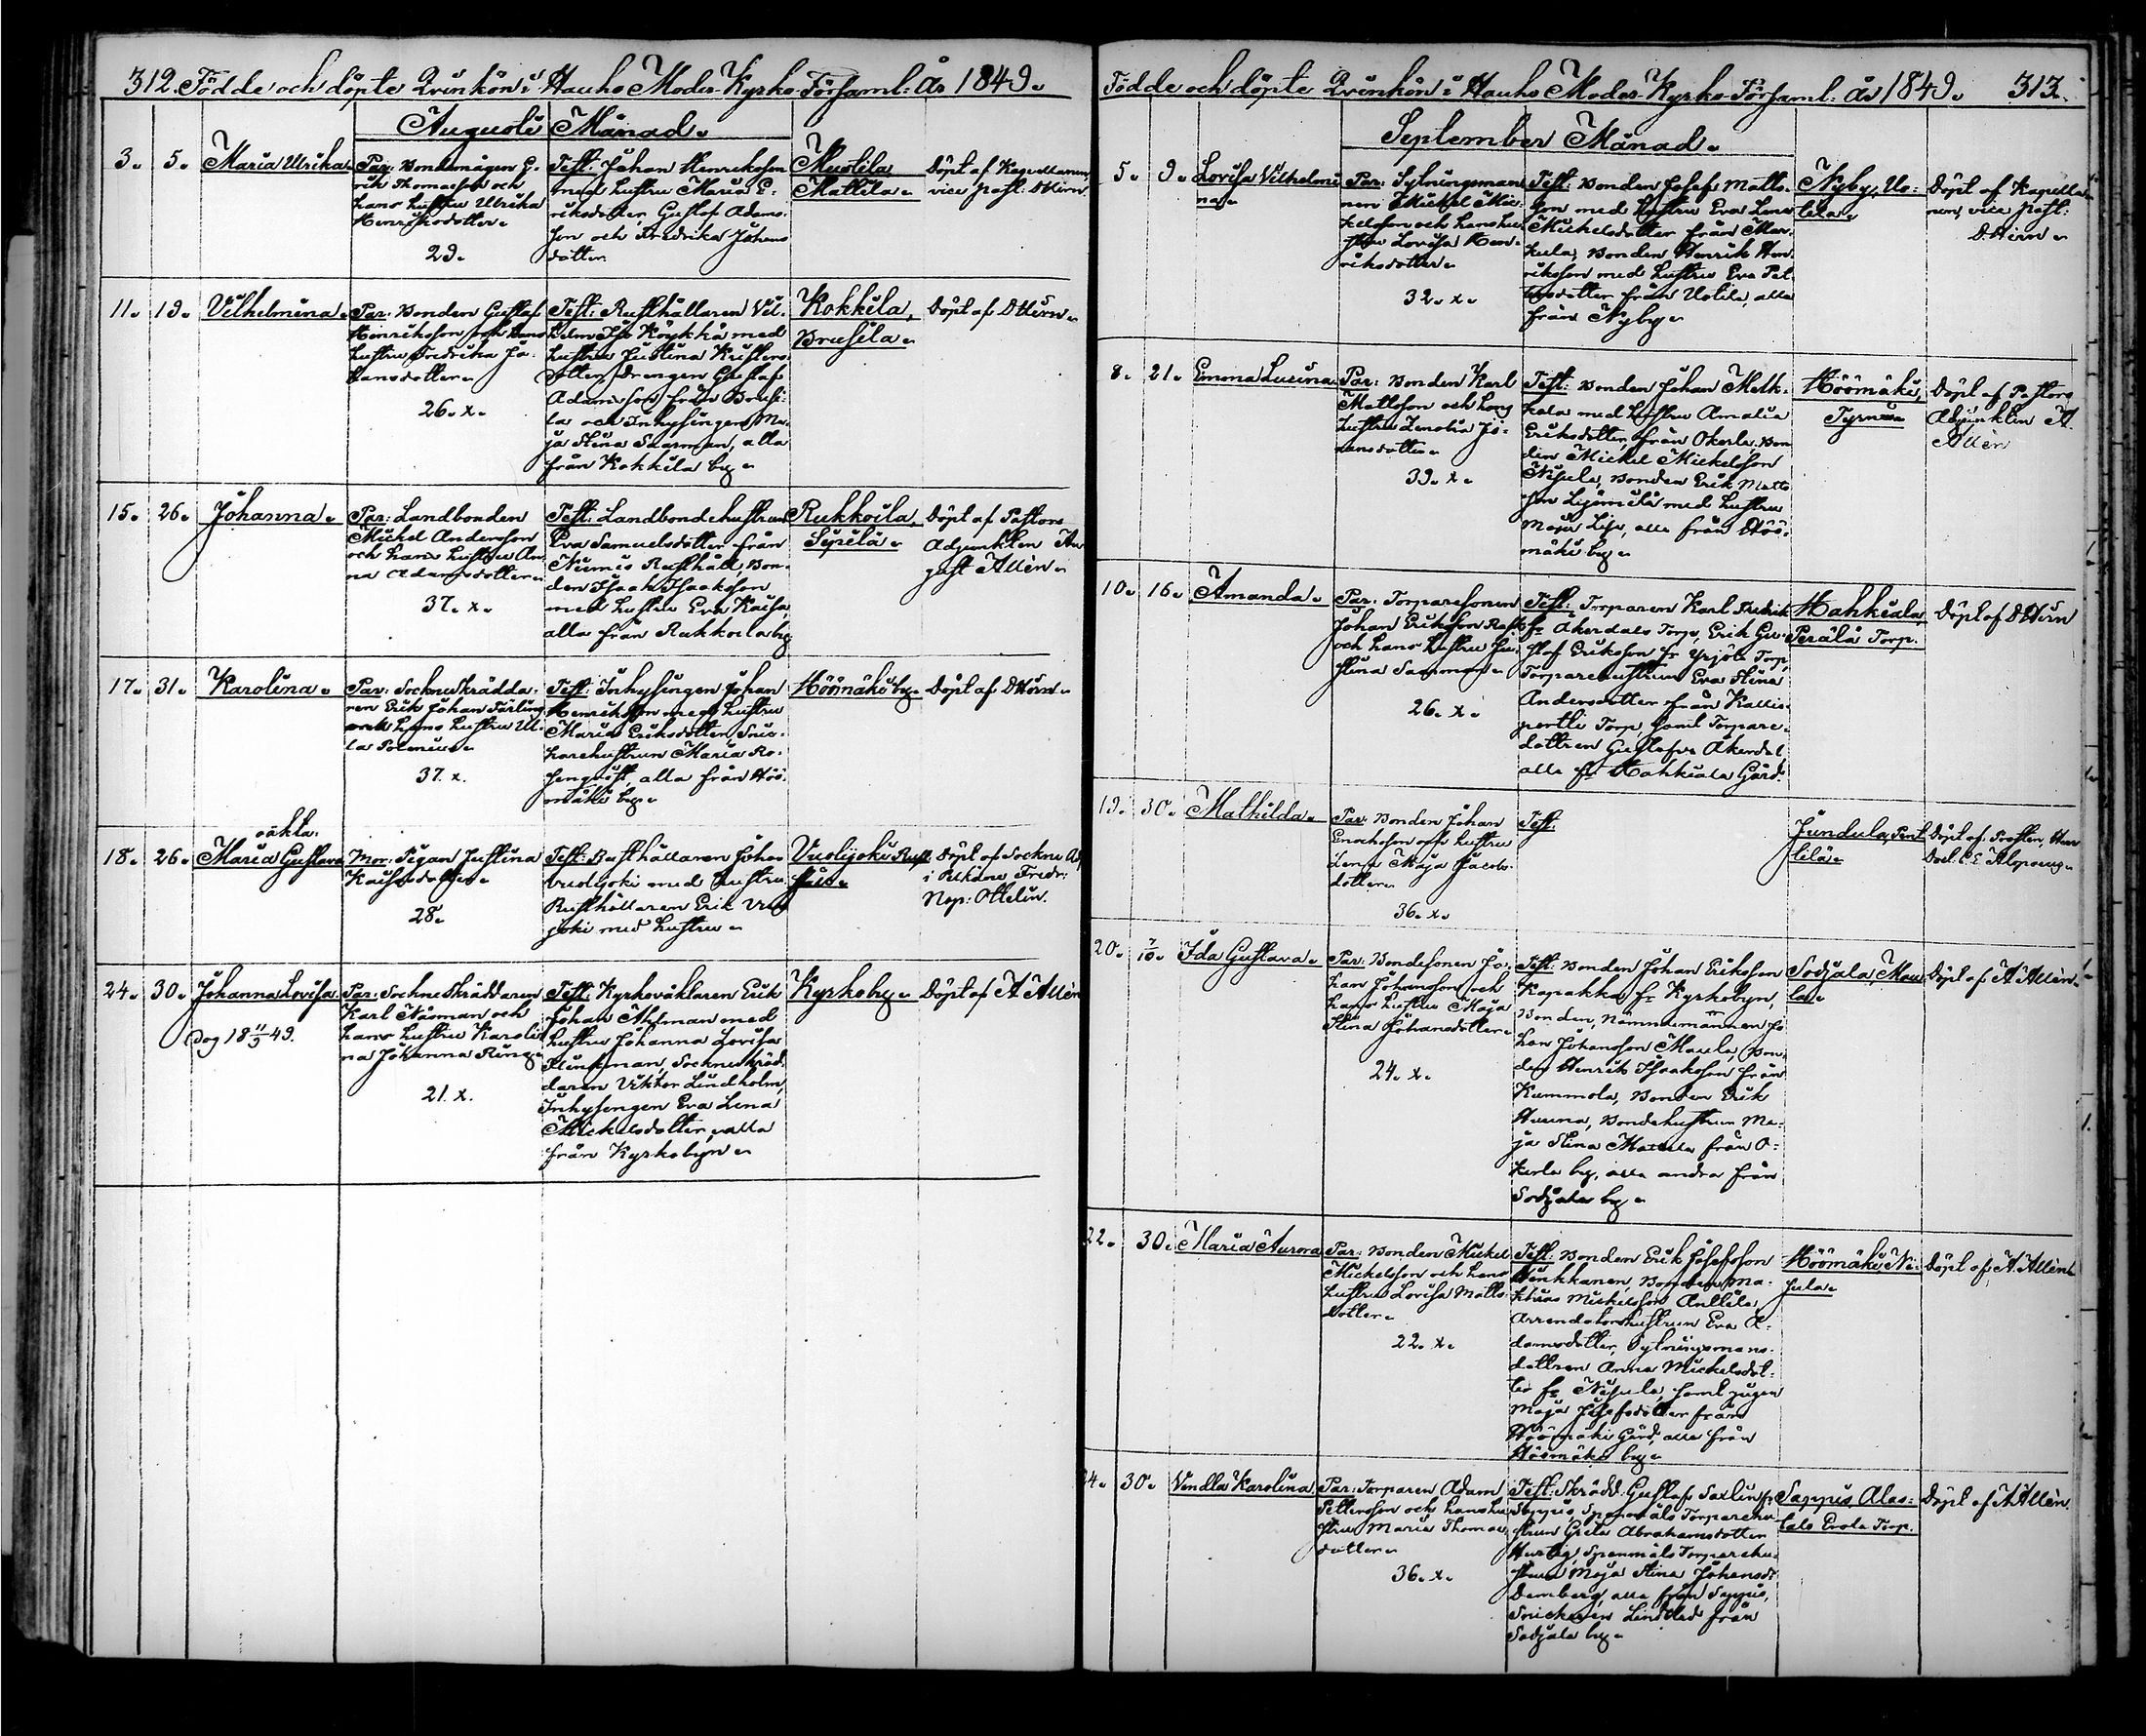 312. Födde och döpte Qvinkön i Hauho Moder-Kyrko-Församl: År 1849.
Augusti Månad.
3. 5. Maria Ulrika.
Par: Bondemågen E-
rik Thomasson och
hans hustru Ulrika
Henriksdotter.
29.
Test: Johan Henriksson
med hustru Maria E-
riksdotter, Gustaf Adams-
son och Fredrika Johans
dotter
Miettila
Mattila.
Döpt af Kapellanen,
vice past: D Hirn.
11. 19. Vilhelmina.
Par: Bonden Gustaf
Henriksson och hans
hustru Fredrika Jo-
hansdotter.
26. x.
Test: Rusthållaren Vil-
helm Iso Köykkä med
hustru Justina Kristers-
dotter, Drengen Gustaf
Adamsson från Brusi-
la och Inhysingen Ma-
ja Stina Saarman, alla
från Kokkila by.
Kokkila,
Brusila.
Döpt af D Hirn.
15. 26. Johanna.
Par: Landbonden
Mickel Andersson
och hans hustru An-
na Adamsdotter.
37. x.
Test: Landbondehustrun
Eva Samuelsdotter från
Niemis Rusthåll, Bon-
den Isaak Isaaksson
med hustru Eva Kaisa,
alla från Rukkoila by.
Rukkoila,
Sipilä.
Döpt af Pastors
Adjunkten Au
gust Allén.
17. 31. Karolina.
Par: Sockneskrädda-
ren Erik Johan Färling
och hans hustru Ul-
la Polenius.
37. x.
Test: Inhysingen Johan
Henriksson med hustru
Maria Eriksdotter, Snic-
karehustrun Maria Ro-
senqvist, alla från Höö-
mäki by.
Höömäki by.
Döpt af D Hirn.
18. 26. oäkta. Maria Gustava
Mor: Pigan Justina
Kaisasdotter.
28.
Test: Rusthållaren Johan
Vuolijoki med hustru
Rusthållaren Erik Vuoli
joki med hustru.
Vuolijoki Rust
håll.
Döpt af Sockne Ad
i Pelkäne Fredr:
Nap: Ottelin.
24. 30. Johanna Lovisa.
Dog 18 11/9 49.
Par: Sockneskräddaren
Karl Näsman och
hans hustru Karoli
na Johanna Ring.
21. x.
Test: Kyrkovaktaren Erik
Johan Ahlman med
hustru Johanna Lovisa
Flinkman, Socknesskräd-
daren Viktor Lindholm,
Inhysingen Eva Lena
Mickelsdotter, alla
från Kyrkobyn.
Kyrkoby.
Döpt af A Allén
Födde och döpte Qvinkön i Hauho Moder-Kyrko-Församl: år 1849. 313.
September Månad.
5. 9. Lovisa Vilhelmi
na.
Par: Sytningsman
nen Mickel Mic-
kelsson och hans hu-
stru Lovisa Hen-
riksdotter.
32. x.
Test: Bonden Josef Matts-
son med hustru Eva Lena
Mickelsdotter från Mar-
kula, Bonden Henrik Hen
riksson med hustru Eva Pet
tersdotter från Uotila, alla
från Nyby.
Nyby, Uo-
tila.
Döpt af Kapella
nen, vice past:
D. Hirn.
8. 21. Emma Lusina
Par: Bonden Karl
Mattsson och hans
hustru Zenobia Jo-
hansdotter.
39. x.
Test: Bonden Johan
med hustru Amalia
Eriksdotter från Okerla, Bon
den Mickel Mickelsson
Nisula, Bonden Erik Matts
son med hustru
Maja Lisa, alla från Höö-
mäki by.
Höömäki,
Döpt af Pastors
Adjunkten A.
Allén
10. 16. Amanda.
Par: Torparesonen
Johan Eriksson
och hans hustru Ju-
stina Sammons.
26. x.
Test: Torparen Karl Fredrik
fr Åkerdals Torp, Erik Gu-
staf Eriksson fr Yrjölä Torp
Torparehustrun Eva Stina
Andersdotter från Kallio
pertti Torp, samt Torpare-
dottren Gustafva Åkerdal
alla fr Hahkiala Gård.
Hahkiala,
Perälä Torp.
Döpt af D Hirn
19. 30. Mathilda.
Par: Bonden Johan
Enochsson och hustru
Lena Maja Jacobs-
dotter.
36. x.
Test:
Jundula, Pent
tilä.
Döpt af Prosten, Herr
Doct. C. E. Alopæus.
20. 7/10. Ida Gustava.
Par: Bondesonen Jo-
han Johansson och
hans hustru Maja
Stina Johansdotter.
24. x.
Test: Bonden Johan Eriksson
Kapakka fr Kyrkobyn,
Bonden, Nämndemannen Jo
han Johansson Maula, Bon
den Henrik Isaksson från
Kummola, Bonden Erik
Bondehustrun Ma-
ja Stina Mattila från O-
kerla by, alla andra från
Sodjala by.
Sodjala, Mau
la.
Döpt af A Allén.
22. 30. Maria Aurora
Par: Bonden Mickel
Mickelsson och hans
hustru Lovisa Matts-
dotter.
22. x.
Test: Bonden Erik Josefsson
Bonden Ma-
thias Mickelsson Anttila,
Arrendatorshustrun Eva A-
damsdotter, Sytningsmans-
dottren Anna Mickelsdot-
ter fr Nisula, samt pigan
Maja Josefsdotter från
Höömäki Gård, alla från
Höömäki by.
Höömäki, Ni-
sula.
Döpt af A. Allén
24. 30. Vendla Karolina.
Par: Torparen Adam
Pettersson och hans hu
stru Maria Thomas
dotter.
36. x.
Test: Skrädd. Gustaf Saxlin fr
Sappis, Spanmåls Torparehu
strun Greta Abrahamsdotter
Hurtig, Spanmåls Torparehu-
strun Maja Stina Johansdr
Damberg, alla från Sappis,
Snickaren Lindblad från
Sodjala by.
Sappis, Alas-
talo Torp.
Döpt af A Allén.